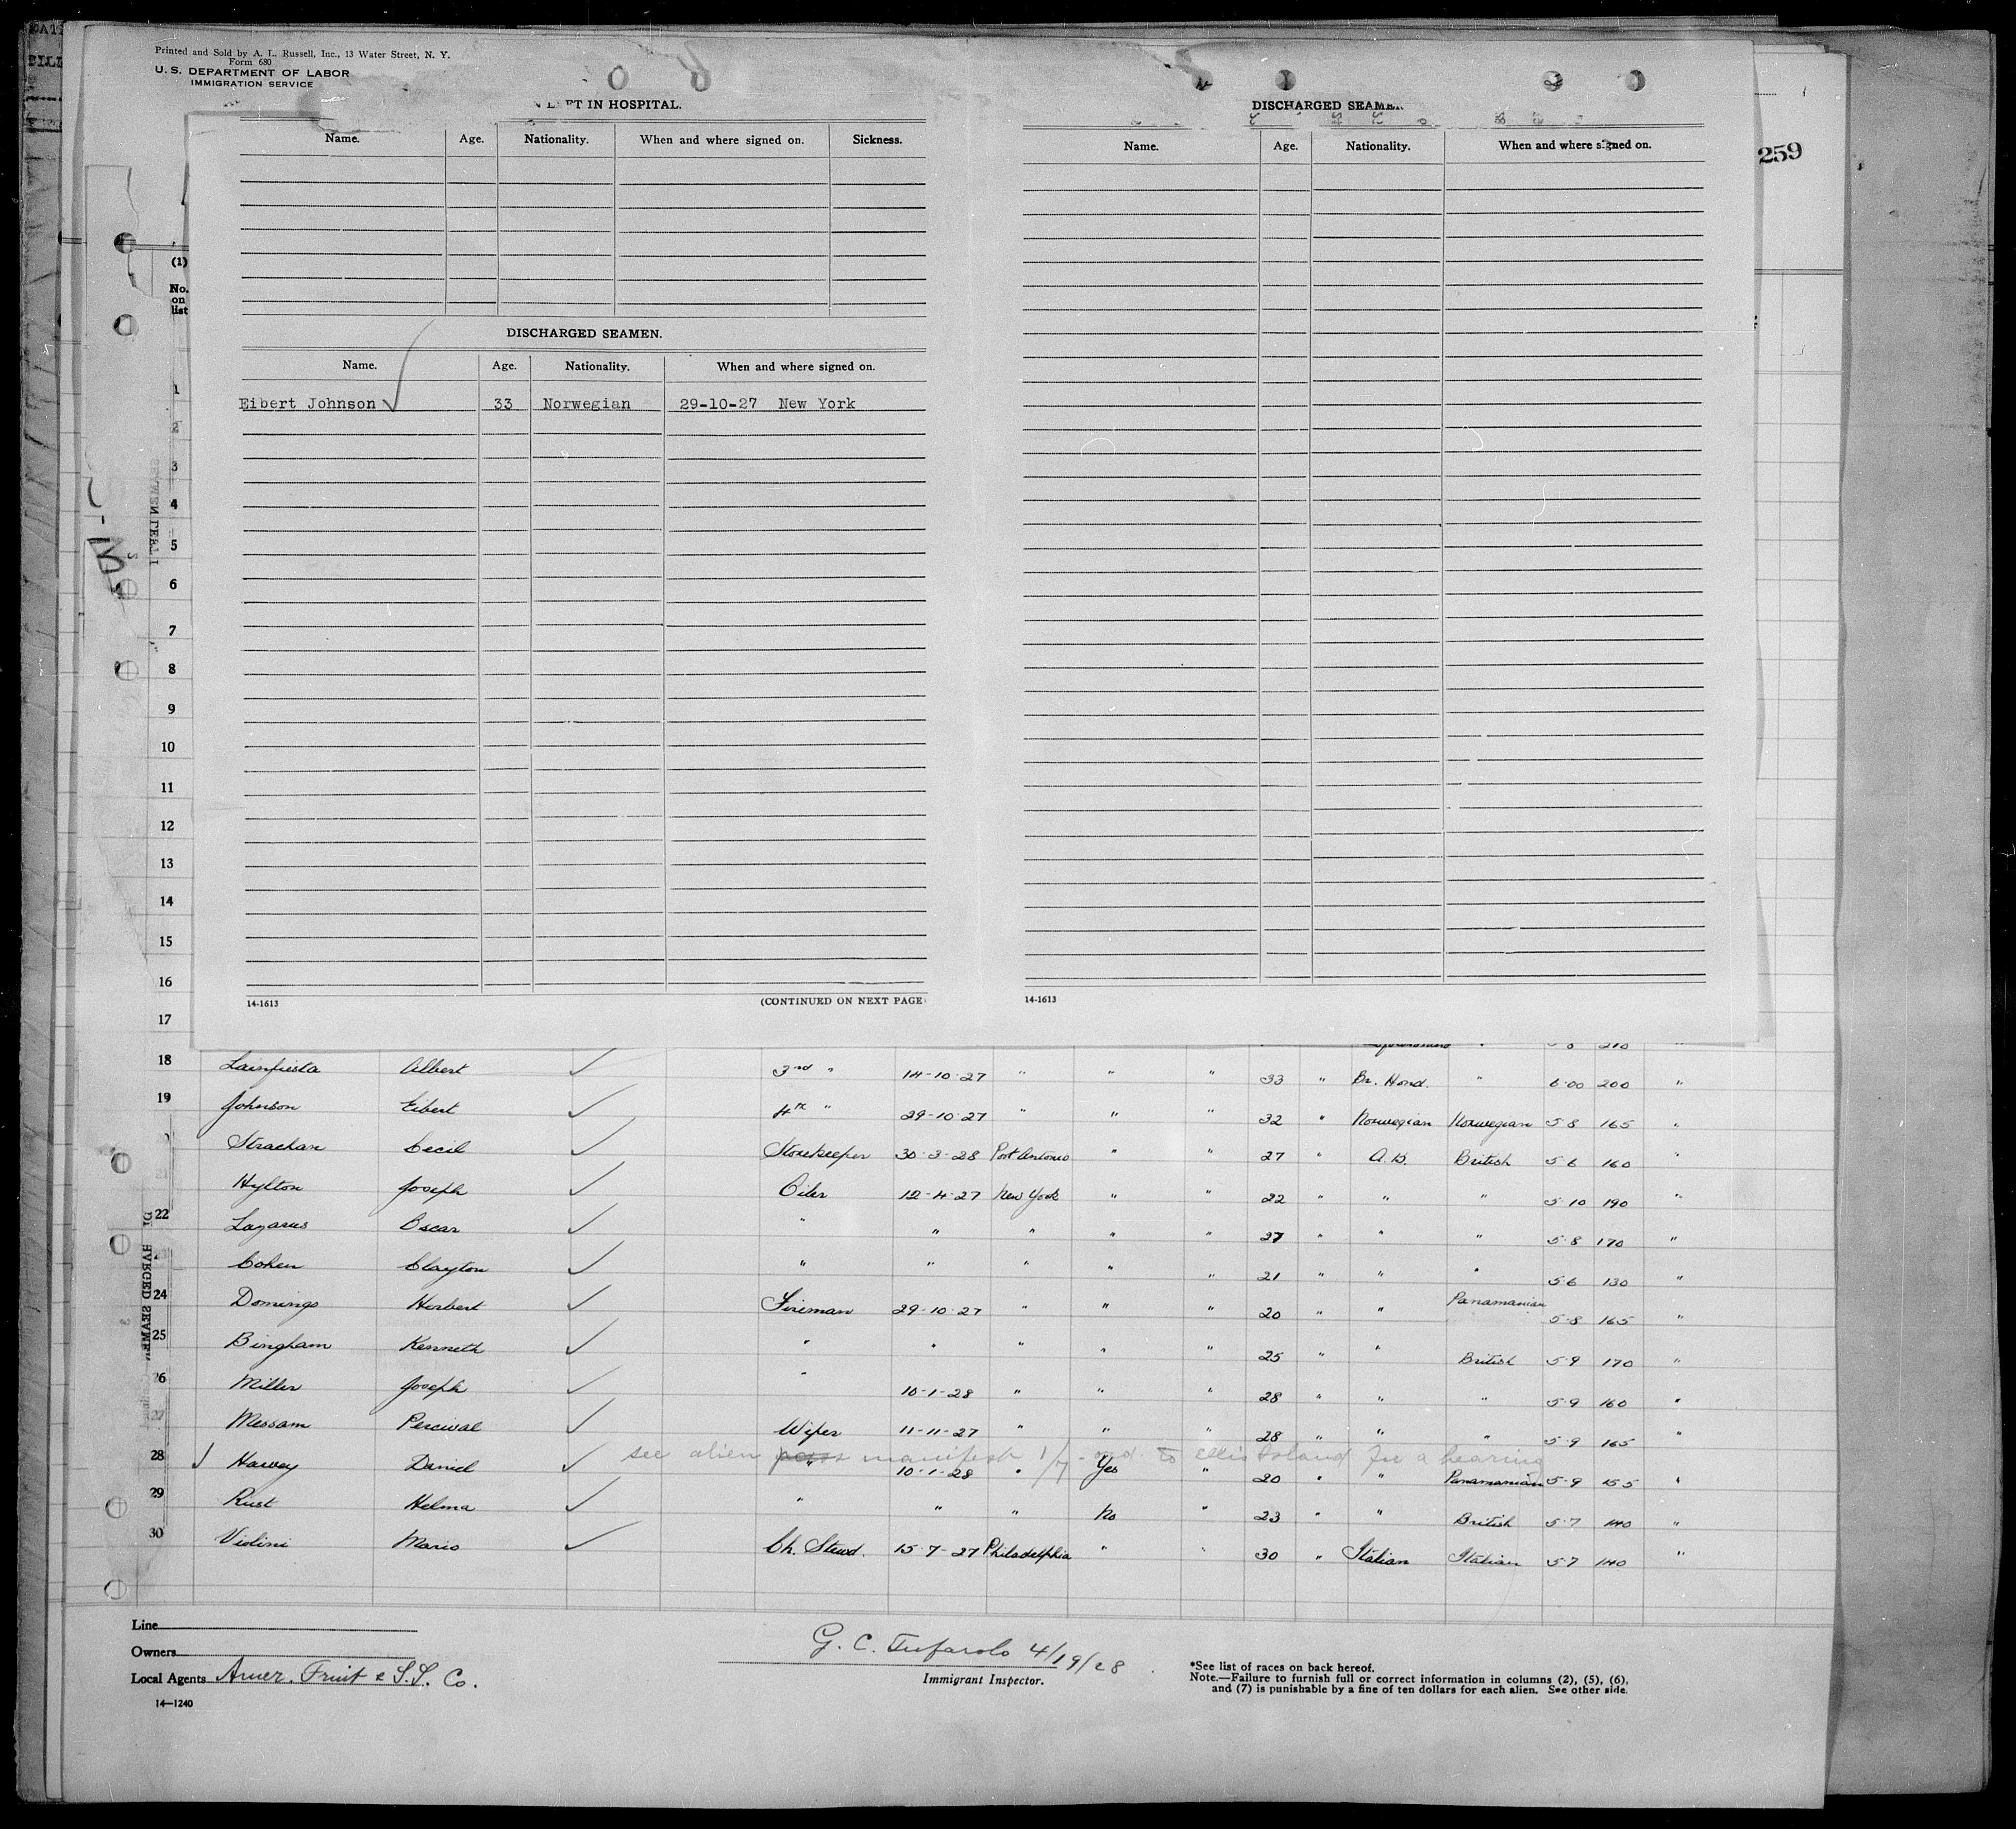 Printed and Sold by A. L. Russell, Inc., 13 Water Street, N. Y.
Form 680
U. S. DEPARTMENT OF LABOR
IMMIGRATION SERVICE
259
IN HOSPITAL.
Name. Age. Nationality. When and where signed on. Sickness.
DISCHARGED SEAMEN.
Name. Age. Nationality. When and where signed on.
Eibert Johnson 33 Norwegian 29-10-27 New York
14-1613 (CONTINUED ON NEXT PAGE
DISCHARGED SEAMEN
Name. Age. Nationality. When and where signed on.
14-1613
(1)
No.
on
list
1
2
3
4
5
6
7
8
9
10
11
12
13
14
15
16
17
18 Lainfiesta Albert 3rd " 14-10-27 " " " 33 " Br. Hond. " 6.00 200 "
19 Johnson Eibert 4th " 29-10-27 " " " 32 " Norwegian Norwegian 5-8 165 "
Strachan Cecil Storekeeper 30-3-28 Port Antonio " " 27 " A.B. British 5-6 160 "
21 Hylton Joseph Oiler 12-4-27 New York " " 22 " " " 5-10 190 "
22 Lazarus Oscar " " " " " 27 " " " 5-8 170 "
23 Cohen Clayton " " " " " 21 " " " 5-6 130 "
24 Domingo Herbert Fireman 29-10-27 " " " 20 " " Panamanian 5-8 165 "
25 Bingham Kenneth " " " " " 25 " " British 5-9 170 "
26 Miller Joseph " 10-1-28 " " " 28 " " " 5-9 160 "
27 Messam Percival Wiper 11-11-27 " " " 28 " " " 5-9 165 "
see alien manifest 1/7 to Ellis Island for a hearing
28 Harvey Daniel " 10-1-28 " Yes " 20 " " Panamanian 5-9 155 "
29 Rust Helma " " " No " 23 " " British 5-7 140 "
30 Violini Mario Ch. Stewd. 15-7-27 Philadelphia " " 30 " Italian Italian 5-7 140 "
Line
Owners
Local Agents Amer. Fruit & S.S. Co.
14—1240
G. C. Tufarolo 4/19/28
Immigrant Inspector.
*See list of races on back hereof.
Note.—Failure to furnish full or correct information in columns (2), (5), (6),
and (7) is punishable by a fine of ten dollars for each alien. See other side.